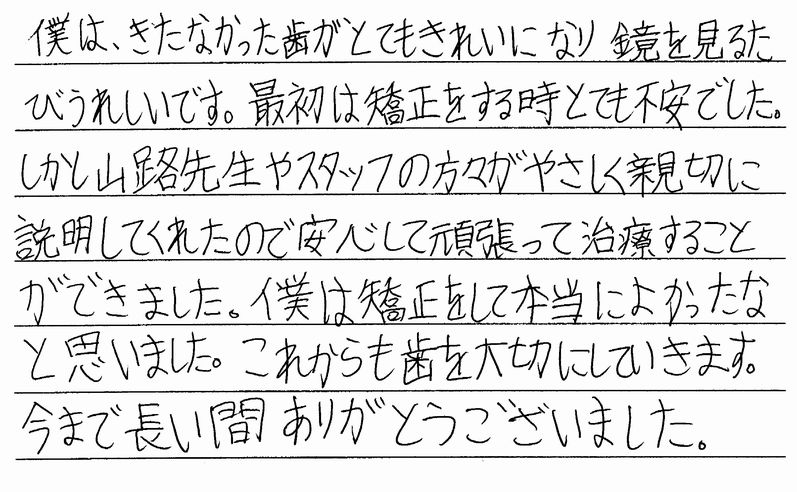 僕は、きたなかった歯がとてもきれいになり 鏡を見るた
びうれしいです。最初は矯正をする時とても不安でした。
しかし山路先生やスタッフの方々がやさしく親切に
説明してくれたので安心して頑張って治療すること
ができました。僕は矯正をして本当によかったな
と思いました。これからも歯を大切にしていきます。
今まで長い間 ありがとうございました。